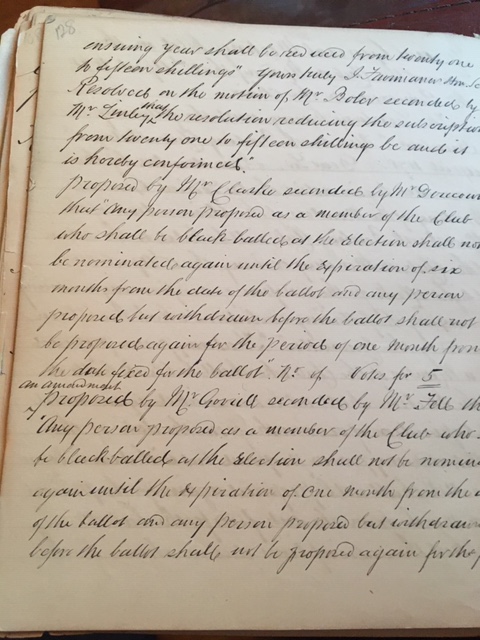 128
ensuing year shall be reduced from twenty one
to fifteen shillings" yours truly J. Hon. Se
Resolved on the motion of Mr Bolor seconded by
Mr that the resolution reducing the subscription
from twenty one to fifteen shillings be and it
is hereby confirmed."
proposed by Mr Clarke seconded by Mr
that "Any person proposed as a member of the Club
who shall be black balled at the Election shall not
be nominated again until the expiration of six
months from the date of the ballot and any person
proposed but withdrawn before the ballot shall not
be proposed again for the period of one month from
the date fixed for the ballot". No. of Votes for 5
an amendment
Proposed by Mr seconded by Mr Fell th
"Any person proposed as a member of the Club who s
be black balled at the Election shall not be nomin
again until the expiration of one month from the d
of the ballot and any person proposed but withdrawn
before the ballot shall not be proposed again for the p